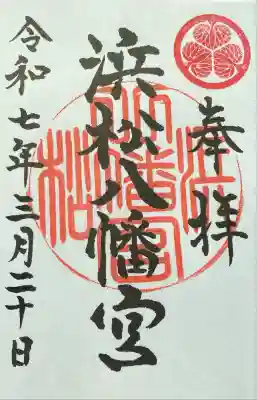 奉拝
浜松八幡宮
令和七年三月二十日